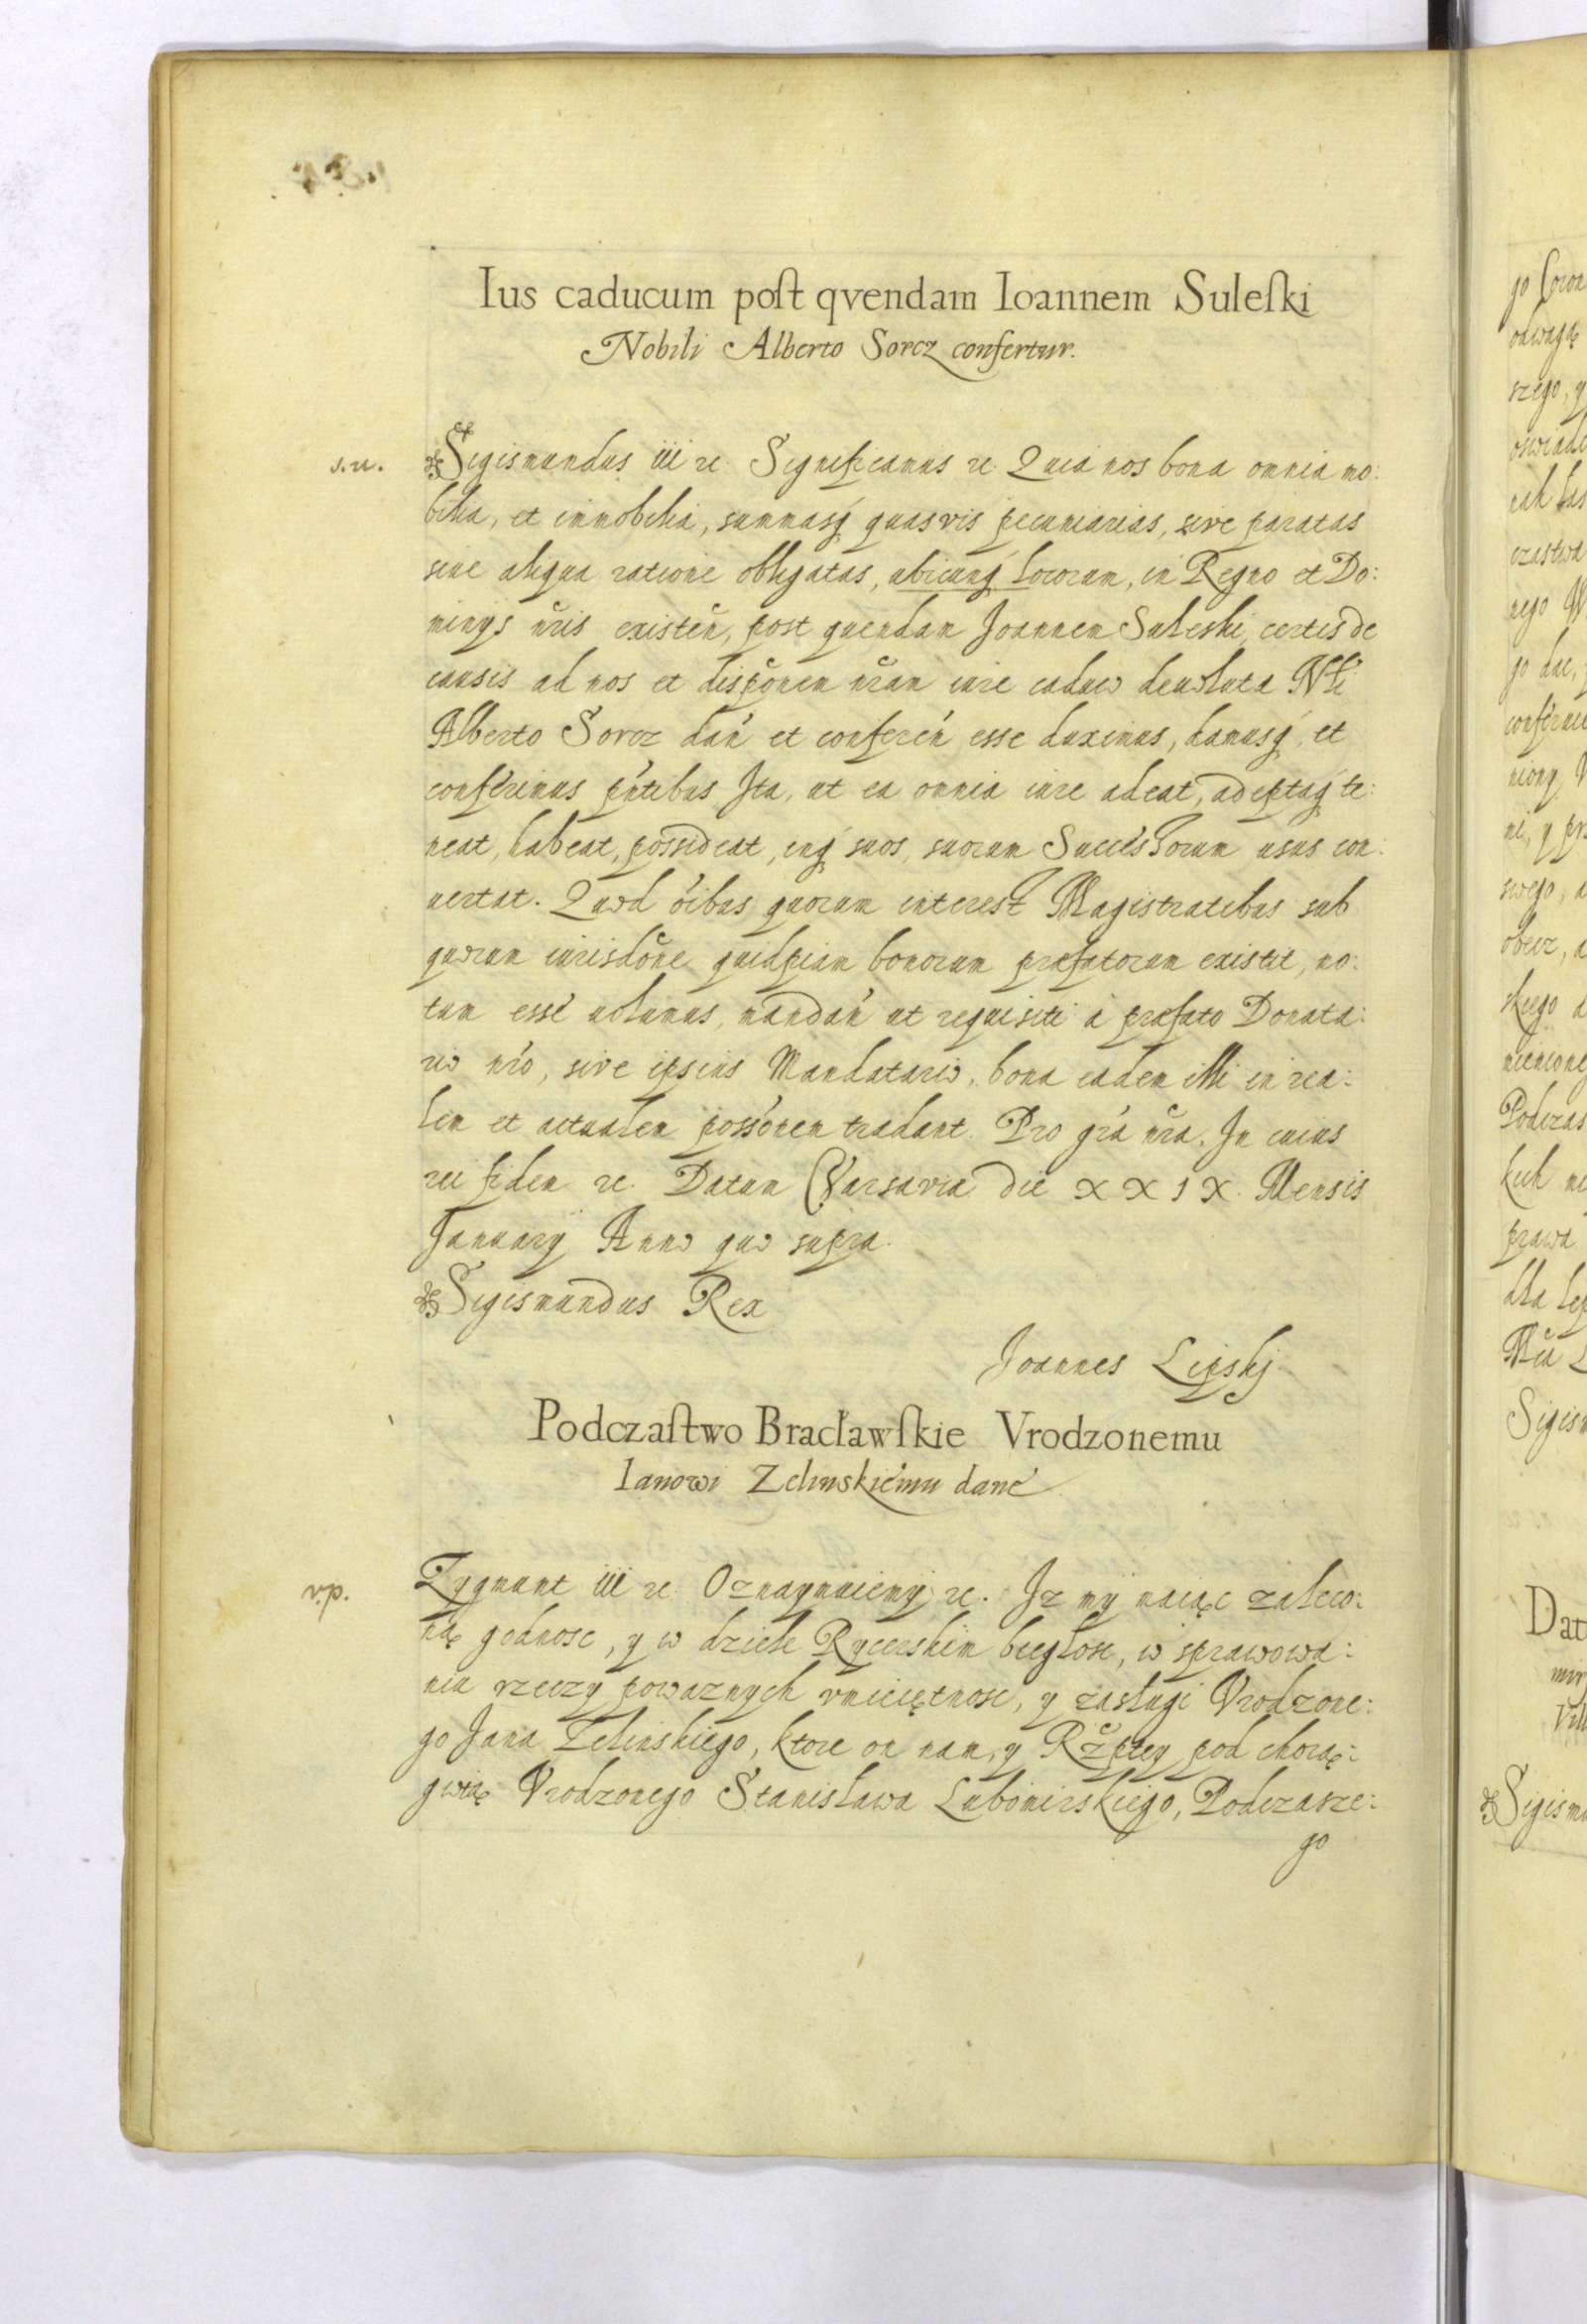 Ius caducum post qvendam Ioannem Suleski
Nobili Alberto Sorcz confertur.
s.u.
Sigismundus iii rc. Significamus rc. Quia nos bona omnia mo:
bilia, et immobilia, summasq́ quasvis pecuniarias, sive paratas
siue aliqua ratione obligatas, ubicunq́ locorum, in Regno et Do:
minijs nr̃is existeñ, post quendam Joannem Suleski, certis de
causis ad nos et dispõnem nr̃am iure caduco deuoluta Nłi
Alberto Sorcz dań et conferéń esse duximus, damusq́ et
conferimus pńtibus Ita, ut ea omnia iure adeat, adeptaq́ te:
neat, habeat, possideat, inq́ suos, suorum Successorum usus con:
uertat. Quod óibus quorum interest Magistratibus sub
quorum iurisdõne quidpiam bonorum præfatorum existit, no:
tum esse uolumus, mandań ut requisiti á præfato Donata:
rio nró, sive ipsius Mandatario, bona eadem illi in rea:
lem et actualem possónem tradant. Pro grá nr̃a. In cuius
rei fidem rc. Datum Varsaviæ die XXIX. Mensis
Januarij Anno quo supra.
Sigismundus Rex
Joannes Lipskj
Podczastwo Bracławskie Vrodzonemu
Ianowi Zelinskiému dané
v.p.
Zygmunt iii rc. Oznaymuiemy rc. Iz my maiąc zaleco:
ną godnosc, y w dziele Rycerskim biegłosc, w sprawowa:
niu rzeczy powaznych vmieiętnosc, y zasługi Vrodzone:
go Jana Zelinskiego, ktore on nam, y Rz̃ptey pod chorą:
gwią Vrodzonego Stanisława Lubomirskiego, Podczasze:
go